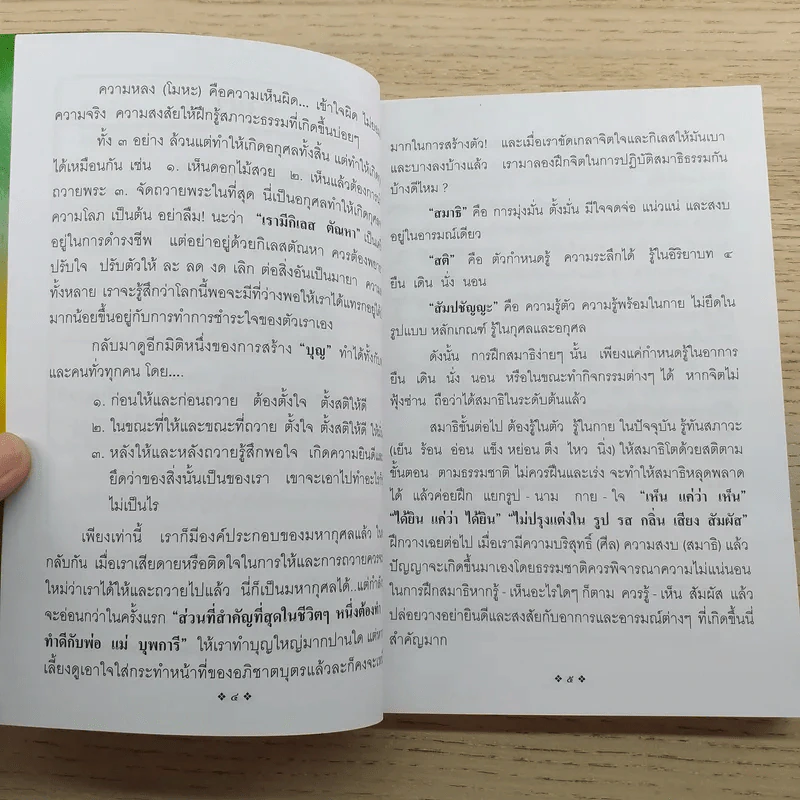 ความหลง (โมหะ) คือความเห็นผิด... เข้าใจผิด
ความจริง ความสงสัยให้ฝึกรู้สภาวะธรรมที่เกิดขึ้นบ่อยๆ
ทั้ง ๓ อย่าง ล้วนแต่ทำให้เกิดอกุศลทั้งสิ้น แต่ทำให้เกิด
ได้เหมือนกัน เช่น ๑. เห็นดอกไม้สวย ๒. เห็นแล้วต้องการ
ถวายพระ ๓. จัดถวายพระในที่สุด นี่เป็นอกุศลทำให้เกิดกุศล
ความโลภ เป็นต้น อย่าลืม! นะว่า “เรามีกิเลส ตัณหา” เป็น
อยู่ในการดำรงชีพ แต่อย่าอยู่ด้วยกิเลสตัณหา ควรต้อง
ปรับใจ ปรับตัวให้ ละ ลด งด เลิก ต่อสิ่งอันเป็นมายา ความ
ทั้งหลาย เราจะรู้สึกว่าโลกนี้พอจะมีที่ว่างพอให้เราได้แทรกอยู่ได้
มากน้อยขึ้นอยู่กับการทำการชำระใจของตัวเราเอง
กลับมาดูอีกมิติหนึ่งของการสร้าง “บุญ” ทำได้ทั้งกับ
และคนทั่วทุกคน โดย....
๑. ก่อนให้และก่อนถวาย ต้องตั้งใจ ตั้งสติให้ดี
๒. ในขณะที่ให้และขณะที่ถวาย ตั้งใจ ตั้งสติให้ดี
๓. หลังให้และหลังถวายรู้สึกพอใจ เกิดความยินดีและ
ยึดว่าของสิ่งนั้นเป็นของเรา เขาจะเอาไปทำอะไรก็
ไม่เป็นไร
เพียงเท่านี้ เราก็มีองค์ประกอบของมหากุศลแล้ว
กลับกัน เมื่อเราเสียดายหรือติดใจในการให้และการถวายควร
ใหม่ว่าเราได้ให้และถวายไปแล้ว นี่ก็เป็นมหากุศลได้..แต่กำลัง
จะอ่อนกว่าในครั้งแรก “ส่วนที่สำคัญที่สุดในชีวิตๆ หนึ่งต้องทำ
ทำดีกับพ่อ แม่ บุพการี” ให้เราทำบุญใหญ่มากปานใด
เลี้ยงดูเอาใจใส่กระทำหน้าที่ของอภิชาตบุตรแล้วละก็คงจะ
❖ ๔ ❖
มากในการสร้างตัว! และเมื่อเราขัดเกลาจิตใจและกิเลสให้มันเบา
และบางลงบ้างแล้ว เรามาลองฝึกจิตในการปฏิบัติสมาธิธรรมกัน
บ้างดีไหม ?
“สมาธิ” คือ การมุ่งมั่น ตั้งมั่น มีใจจดจ่อ แน่วแน่ และสงบ
อยู่ในอารมณ์เดียว
“สติ” คือ ตัวกำหนดรู้ ความระลึกได้ รู้ในอิริยาบท ๔
ยืน เดิน นั่ง นอน
“สัมปชัญญะ” คือ ความรู้ตัว ความรู้พร้อมในกาย ไม่ยึดใน
รูปแบบ หลักเกณฑ์ รู้ในกุศลและอกุศล
ดังนั้น การฝึกสมาธิง่ายๆ นั้น เพียงแค่กำหนดรู้ในอาการ
ยืน เดิน นั่ง นอน หรือในขณะทำกิจกรรมต่างๆ ได้ หากจิตไม่
ฟุ้งซ่าน ถือว่าได้สมาธิในระดับต้นแล้ว
สมาธิขั้นต่อไป ต้องรู้ในตัว รู้ในกาย ในปัจจุบัน รู้ทันสภาวะ
(เย็น ร้อน อ่อน แข็ง หย่อน ตึง ไหว นิ่ง) ให้สมาธิโตด้วยสติตาม
ขั้นตอน ตามธรรมชาติ ไม่ควรฝืนและเร่ง จะทำให้สมาธิหลุดพลาด
ได้ แล้วค่อยฝึก แยกรูป - นาม กาย - ใจ “เห็น แค่ว่า เห็น”
“ได้ยิน แค่ว่า ได้ยิน” “ไม่ปรุงแต่งใน รูป รส กลิ่น เสียง สัมผัส”
ฝึกวางเฉยต่อไป เมื่อเรามีความบริสุทธิ์ (ศีล) ความสงบ (สมาธิ) แล้ว
ปัญญาจะเกิดขึ้นมาเองโดยธรรมชาติควรพิจารณาความไม่แน่นอน
ในการฝึกสมาธิหากรู้ - เห็นอะไรใดๆ ก็ตาม ควรรู้ - เห็น สัมผัส แล้ว
ปล่อยวางอย่ายินดีและสงสัยกับอาการและอารมณ์ต่างๆ ที่เกิดขึ้นนี่
สำคัญมาก
❖ ๕ ❖